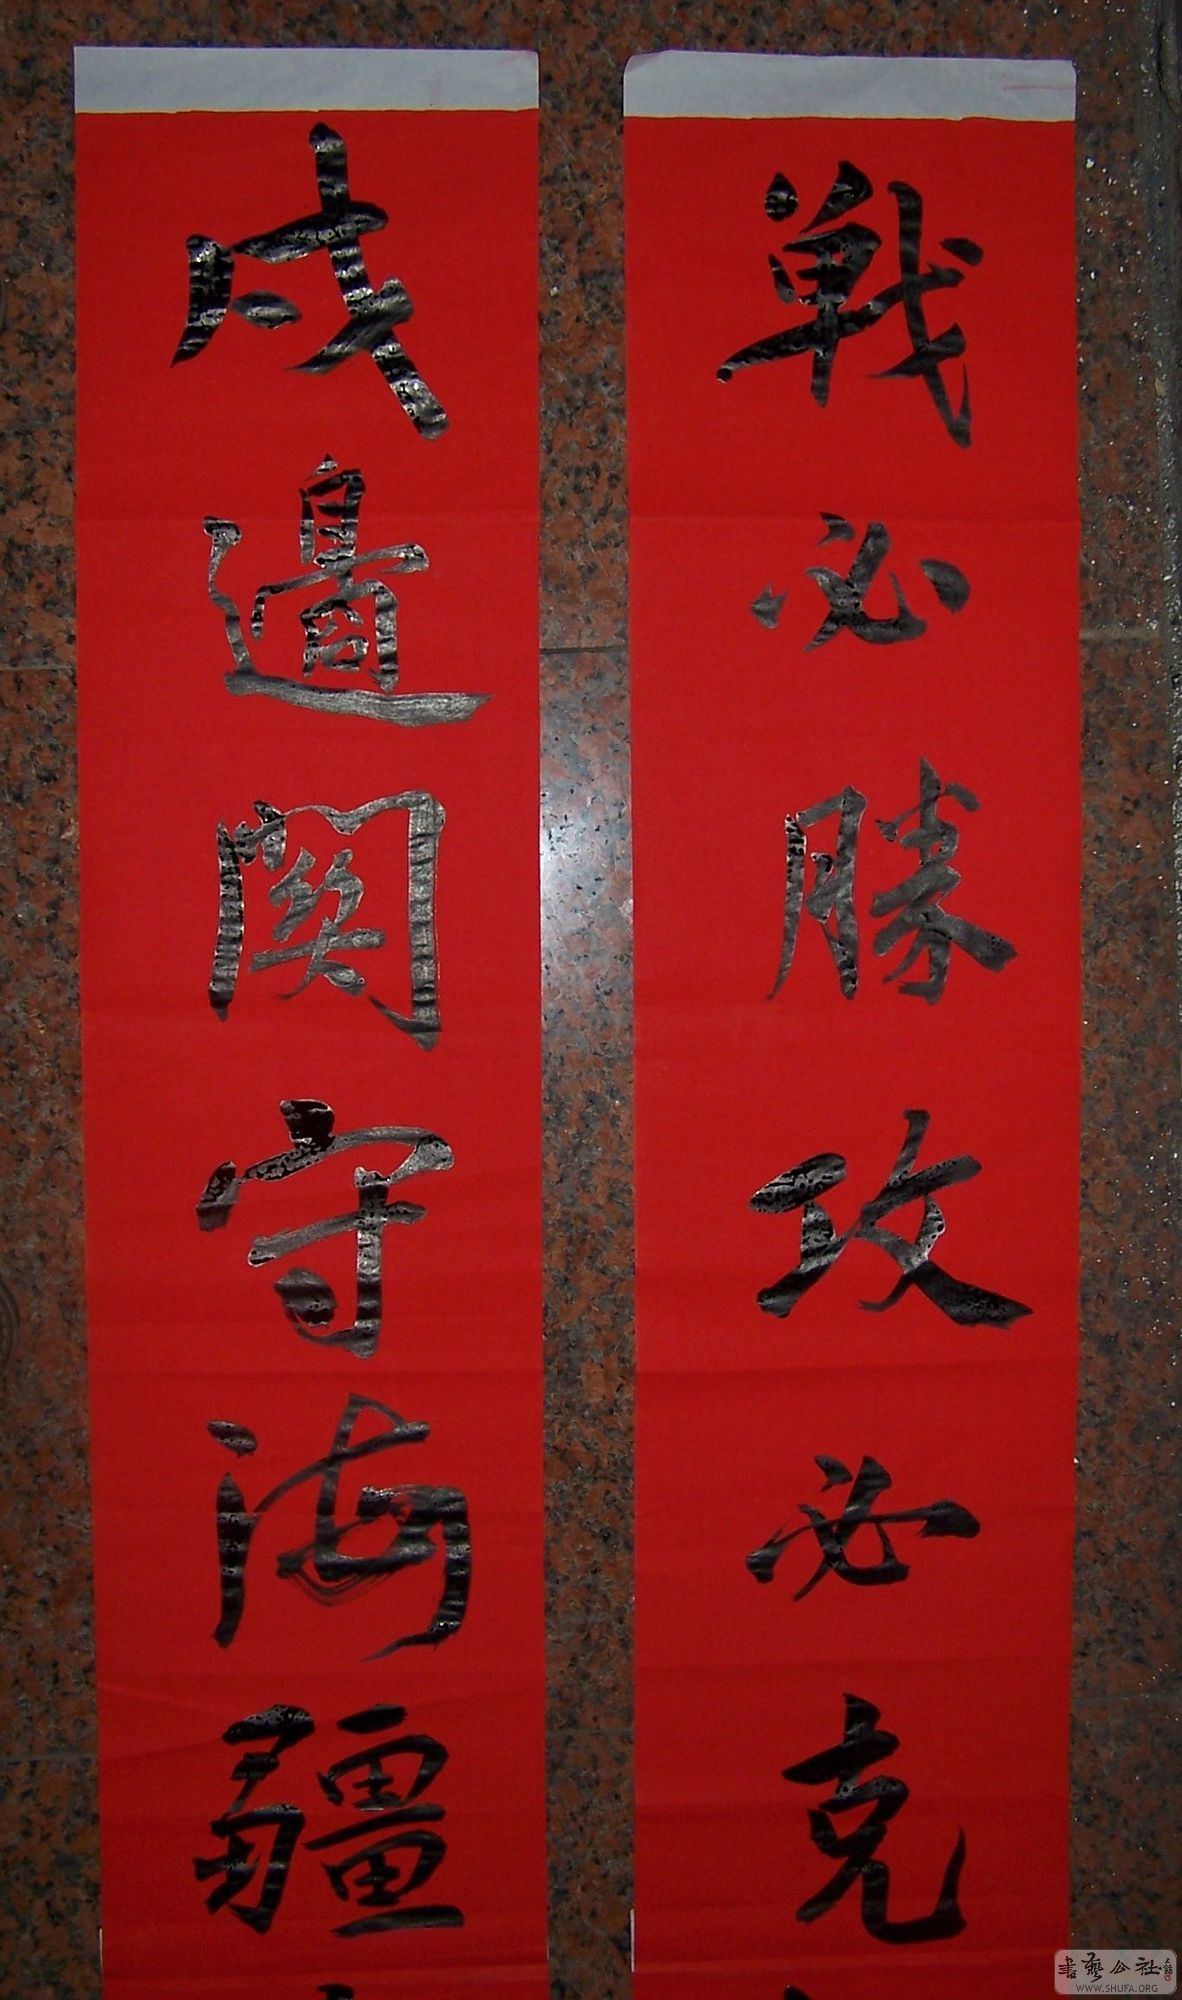 戰必勝攻必克
戍邊関守海疆
書藝公社
WWW.SHUFA.ORG